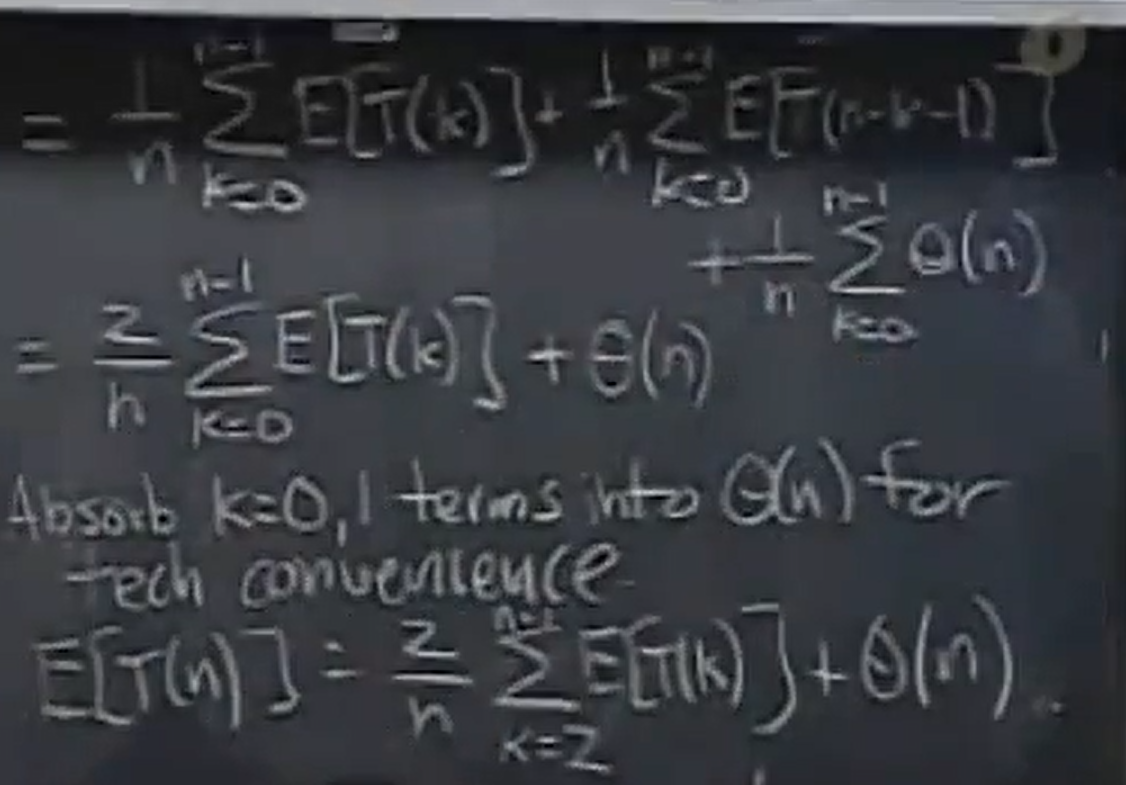 = 1/n ∑_{k=0}^{n-1} E[T(k)] + 1/n ∑_{k=0}^{n-1} E[T(n-k-1)]
+ 1/n ∑_{k=0}^{n-1} Θ(n)
= 2/n ∑_{k=0}^{n-1} E[T(k)] + Θ(n)
Absorb k=0,1 terms into Θ(n) for
tech convenience.
E[T(n)] = 2/n ∑_{k=2}^{n-1} E[T(k)] + Θ(n)